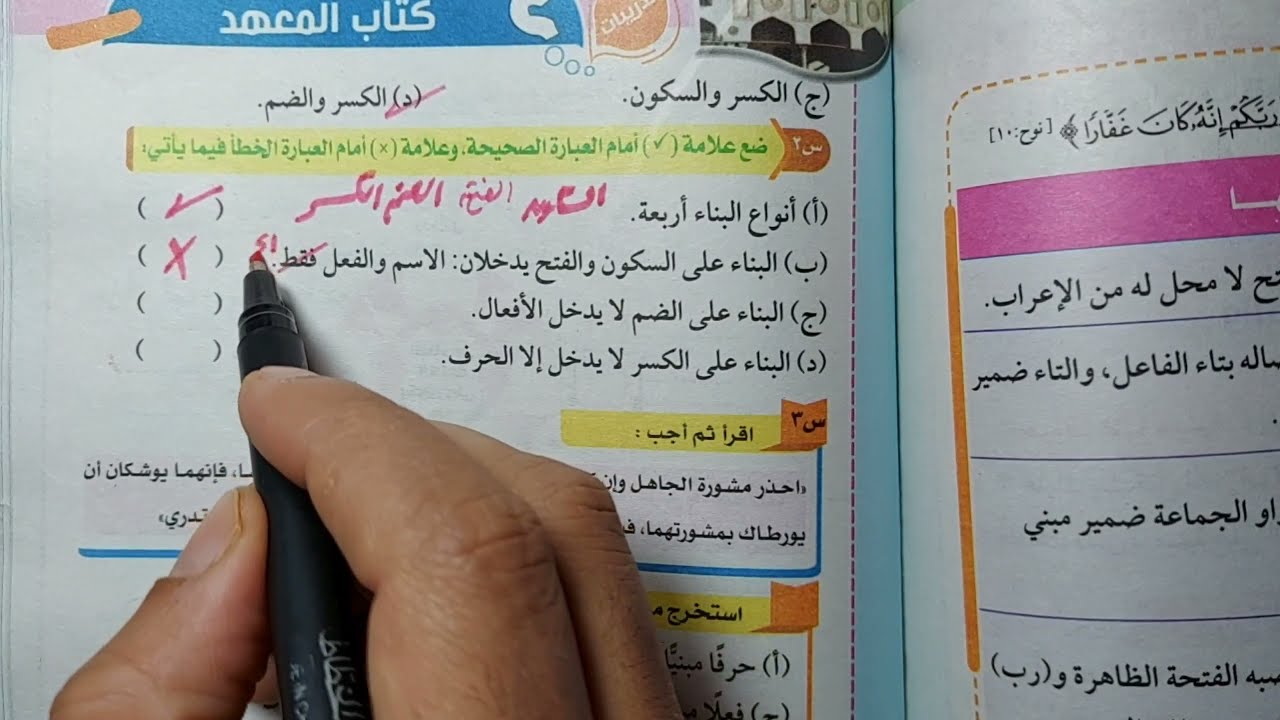 كتاب المعهد
تدريبات
(ج) الكسر والسكون. (د) الكسر والضم.
س٢ ضع علامة (✓) أمام العبارة الصحيحة، وعلامة (×) أمام العبارة الخطأ فيما يأتي:
السكون الفتح الضم الكسر
(أ) أنواع البناء أربعة. ( ✓ )
(ب) البناء على السكون والفتح يدخلان: الاسم والفعل فقط. ( X )
(ج) البناء على الضم لا يدخل الأفعال. ( )
(د) البناء على الكسر لا يدخل إلا الحرف. ( )
س٣ اقرأ ثم أجب :
«احذر مشورة الجاهل وإن ـا، فإنهما يوشكان أن
يورطاك بمشورتهما، تدري»
استخرج
(أ) حرفًا مبنيًّا
(ج) فعلًا
رَبَّكُمْ إِنَّهُۥ كَانَ غَفَّارًا ﴾ [نوح:١٠]
ـها
ـتح لا محل له من الإعراب.
ـصاله بتاء الفاعل، والتاء ضمير
ـواو الجماعة ضمير مبني
ـصبه الفتحة الظاهرة و(رب)